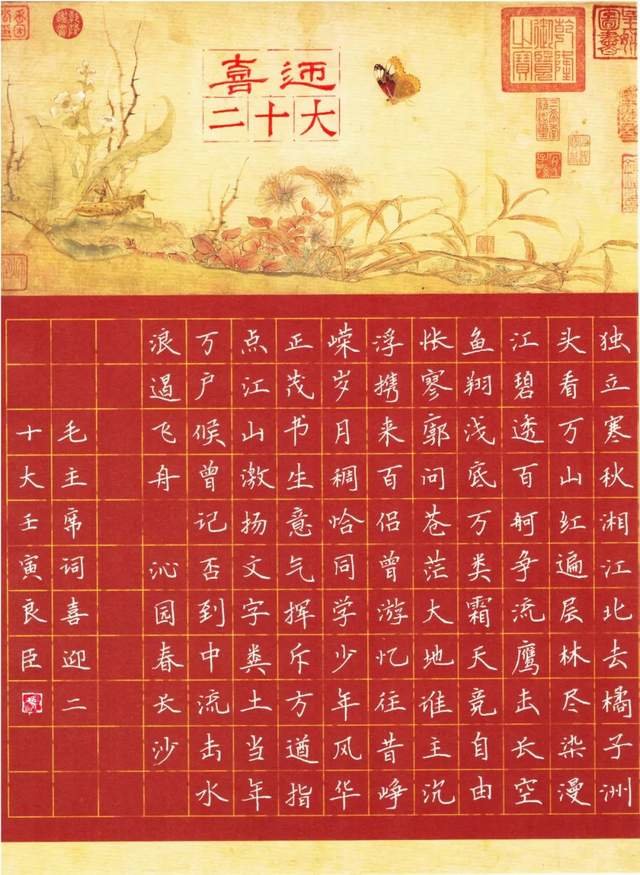 喜迎
二十大
独立寒秋湘江北去橘子洲
头看万山红遍层林尽染漫
江碧透百舸争流鹰击长空
鱼翔浅底万类霜天竞自由
怅寥廓问苍茫大地谁主沉
浮携来百侣曾游忆往昔峥
嵘岁月稠恰同学少年风华
正茂书生意气挥斥方遒指
点江山激扬文字粪土当年
万户候曾记否到中流击水
浪遏飞舟 沁园春长沙
毛主席词喜迎二
十大壬寅良臣